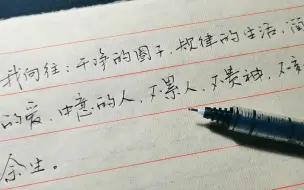 我向往：干净的圈子，规律的生活，
的爱，中意的人，不累人，不费神，不
余生。